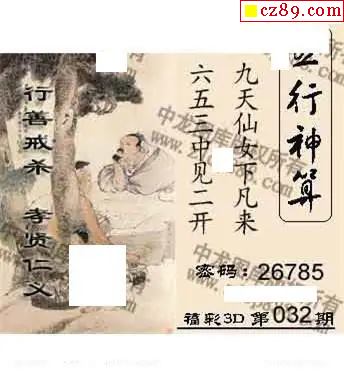 cz89.com
五行神算
九天仙女下凡来
六五三中见二开
行善戒杀 孝贤仁义
密码：26785
福彩3D 第032期